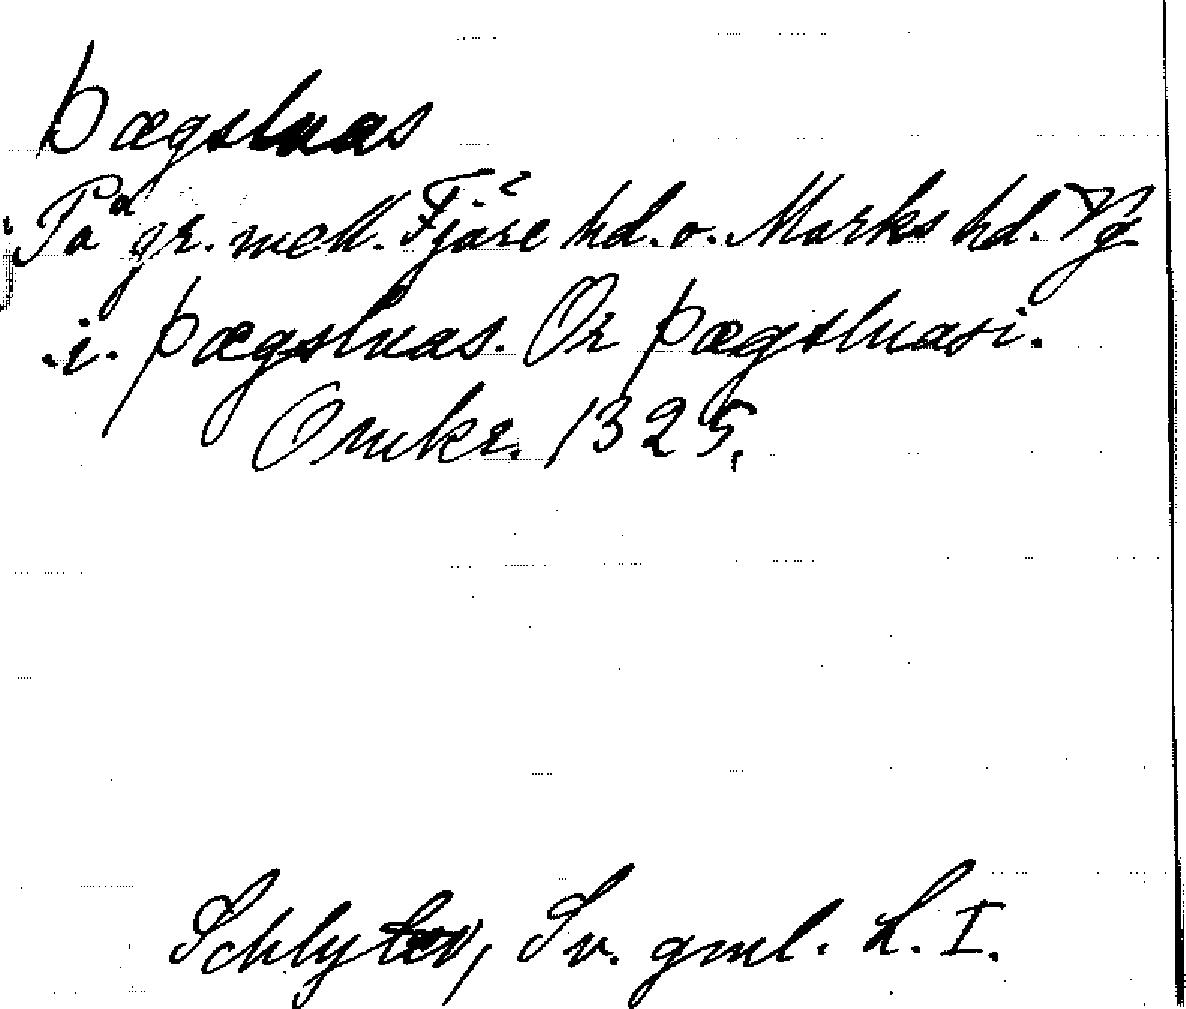 þægsluas
På gr. mell. Fjäre hd. o. Marks hd. Vg
.i. þægsluas. Or þægsluasi.
Omkr. 1325.
Schlyter, Sv. gml. L. I.